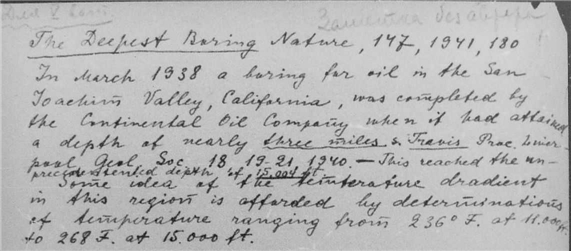 Заметка без автора
The Deepest Boring Nature, 147, 1941, 180
In March 1938 a boring for oil in the San
Joachim Valley, California, was completed by
the Continental Oil Company when it had attained
a depth of nearly three miles s. Travis Proc. Liver-
pool Geol. Soc. 18 19-21, 1940. — This reached the un-
precedented depth of 15.004 ft.
Some idea of the temterature dradient
in this region is afforded by determinations
of temperature ranging from 236° F. at 11.000 ft.
to 268 F. at 15.000 ft.